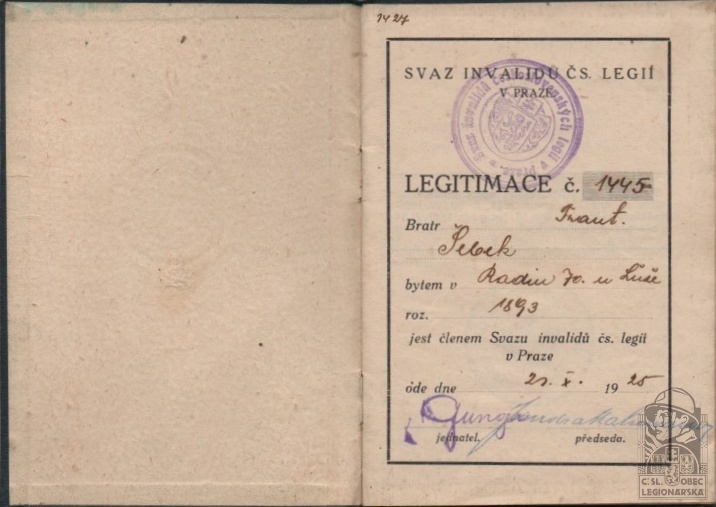 1427
SVAZ INVALIDŮ ČS. LEGIÍ
V PRAZE
Svaz invalidů československých legií v Praze
LEGITIMACE č. 1445
Bratr Frant.
Šebek
bytem v Radim 70. u Luže
roz. 1893
jest členem Svazu invalidů čs. legií
v Praze
ode dne X. 1925
jednatel. předseda.
ČSL. OBEC
LEGIONÁŘSKÁ